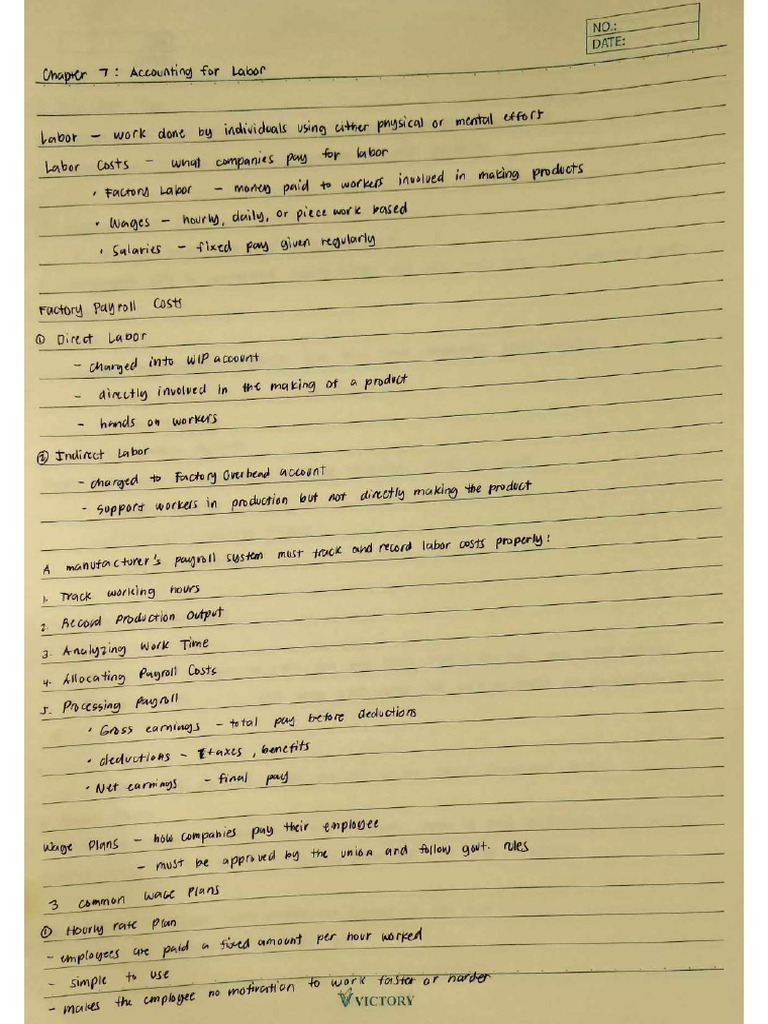 NO.:
DATE:
Chapter 7: Accounting for Labor
Labor – work done by individuals using either physical or mental effort
Labor Costs – what companies pay for labor
• Factory Labor – money paid to workers involved in making products
• Wages – hourly, daily, or piece work based
• Salaries – fixed pay given regularly
Factory Payroll Costs
① Direct Labor
- charged into WIP account
- directly involved in the making of a product
- hands on workers
② Indirect Labor
- charged to Factory Overhead account
- support workers in production but not directly making the product
A manufacturer's payroll system must track and record labor costs properly:
1. Track working hours
2. Record Production Output
3. Analyzing Work Time
4. Allocating Payroll Costs
5. Processing Payroll
• Gross earnings – total pay before deductions
• deductions – taxes, benefits
• Net earnings – final pay
Wage Plans – how companies pay their employee
– must be approved by the union and follow govt. rules
3 common wage plans
① Hourly rate Plan
- employees are paid a fixed amount per hour worked
- simple to use
- makes the employee no motivation to work faster or harder
VICTORY